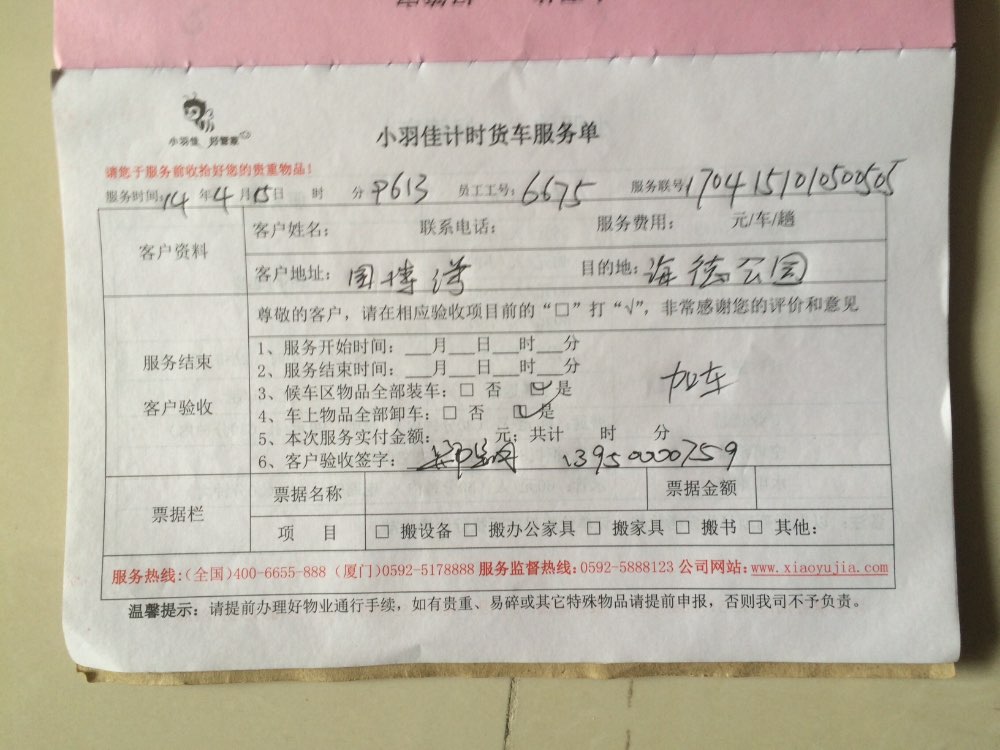 小羽佳 好管家
小羽佳计时货车服务单
请您于服务前收拾好您的贵重物品!
服务时间: 14 年 4 月 15 日 时 分 P613 员工工号: 6675 服务联号 1704151010500505
客户资料 客户姓名: 联系电话: 服务费用: 元/车/趟
客户地址: 国博湾 目的地: 海德公园
尊敬的客户，请在相应验收项目前的“□”打“√”，非常感谢您的评价和意见
服务结束 客户验收
1、服务开始时间: ___月___日___时___分
2、服务结束时间: ___月___日___时___分
3、候车区物品全部装车: □ 否 ☑ 是
加车
4、车上物品全部卸车: □ 否 ☑ 是
5、本次服务实付金额: 元; 共计 时 分
6、客户验收签字: 13950000759
票据栏 票据名称 票据金额
项 目 □ 搬设备 □ 搬办公家具 □ 搬家具 □ 搬书 □ 其他:
服务热线:(全国)400-6655-888 (厦门)0592-5178888 服务监督热线:0592-5888123 公司网站:www.xiaoyujia.com
温馨提示: 请提前办理好物业通行手续，如有贵重、易碎或其它特殊物品请提前申报，否则我司不予负责。